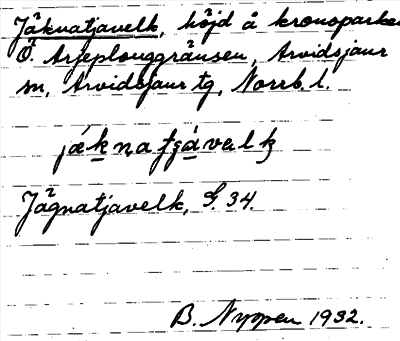 Jäknatjavelk, höjd å kronoparken
Ö. Arjeplouggränsen, Arvidsjaur
sn, Arvidsjaur tg, Norrb. l.
Jägnatjavelk, G. 34.
B. Nyppen 1932.